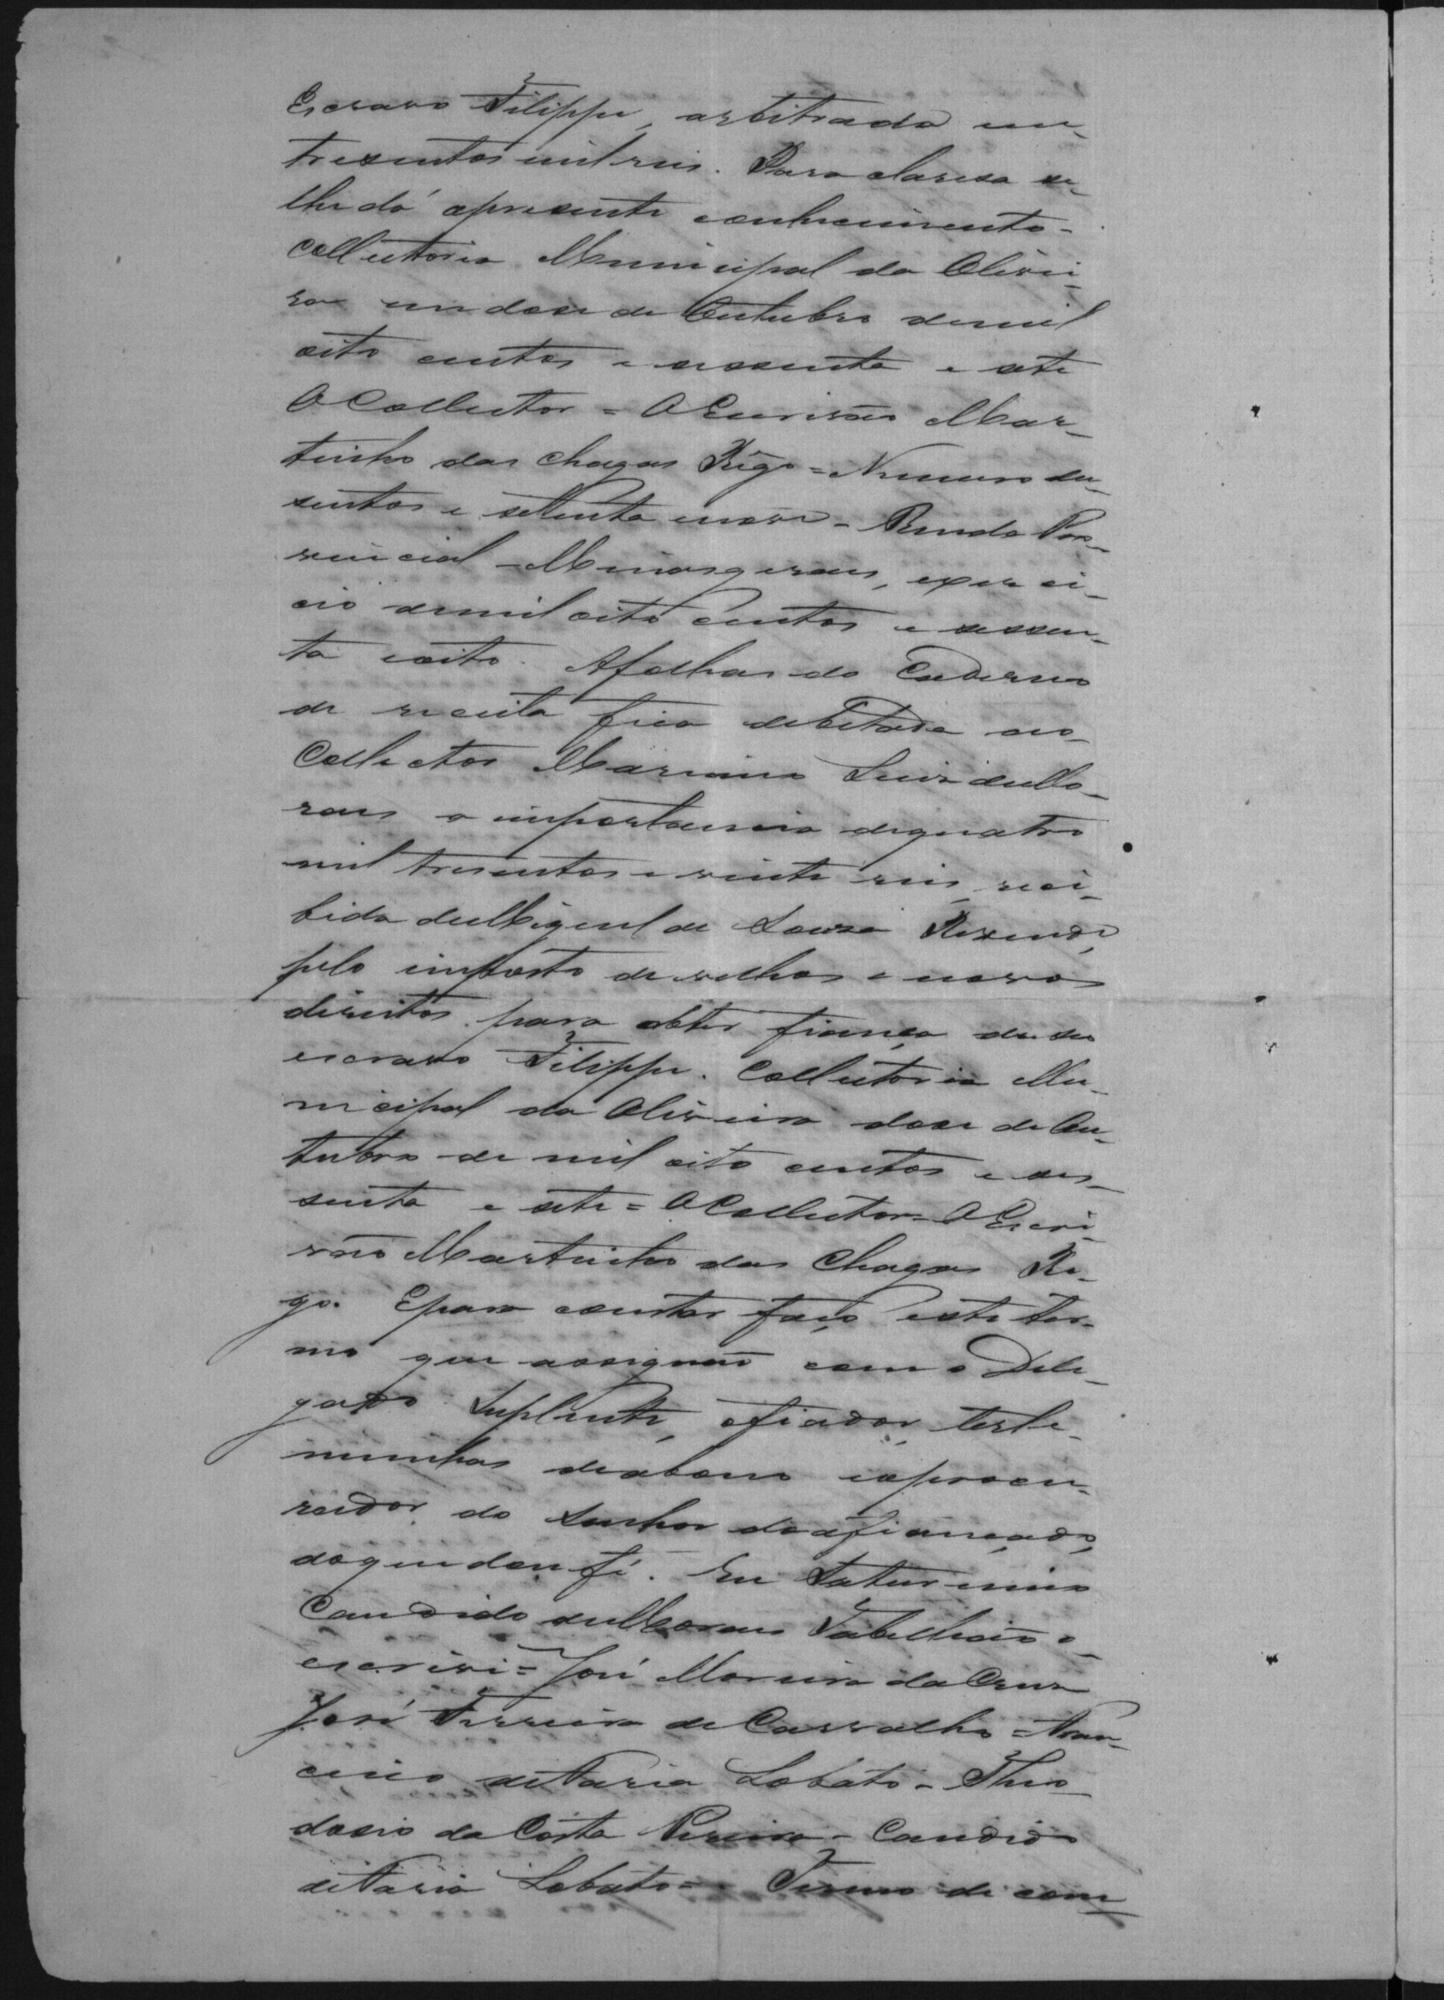 Escravo Filippe, arbitrada em
tresentos mil reis. Para claresa se
lhe dá apresente conhecimento -
Collectoria Municipal da Olivei-
ra em dose de Outubro de mil
oito centos e sessenta e sete
O Collector = O Escrivão Mar-
tinho das Chagas Rêgo = Numero du-
sentos e setenta nove - Renda Pro-
vincial - Minasgeraes, exerci-
cio de mil oito centos e sessen-
ta eoito. Afolhas do Caderno
de receita fica debitada ao
Collector Marciano Luis de Mo-
raes a importancia de quatro
mil tresentos e vinte reis, rece-
bida de Miguel de Sousa Resende,
pelo imposto de velhos e novos
direitos para obter fiança de seu
escravo Filippe. Collectoria Mu-
nicipal da Oliveira dose de Ou-
tubro de mil oito centos e ses-
senta e sete = O Collector = O Escri-
vão Martinho das Chagas Re-
go. Epara constar faço este ter-
mo que assignão com o Dele-
gado Suplente, ofiador, teste-
munhas deabono eoprocu-
rador do Senhor do afiançado,
doque dou fé. Eu Saturnino
Candido de Moraes Tabellião o
escrevi = José Moreira da Cruz
José Ferreira de Carvalho =
de Faria Lobato - Theo-
dosio da Costa Pereira - Candido
de Faria Lobato = Termo de com